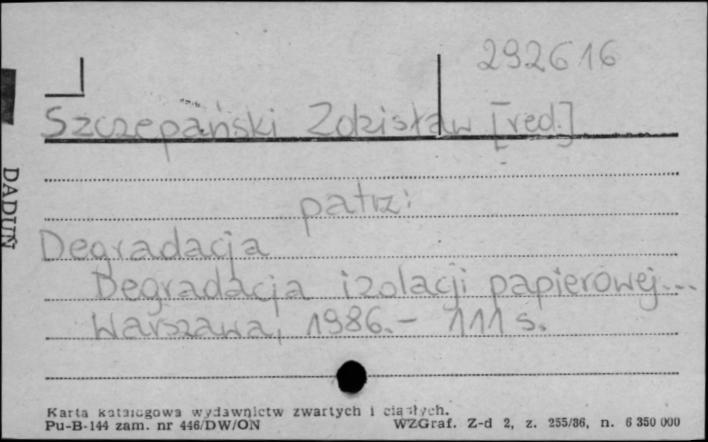 292616
Szczepański Zdzisław [red.]
patrz:
Degradacja
Degradacja izolacji papierowej...
Warszawa, 1986.- 111 s.
DADUŃ
Karta katalogowa wydawnictw zwartych i ciągłych.
Pu-B-144 zam. nr 446/DW/ON WZGraf. Z-d 2, z. 255/86, n. 6 350 000